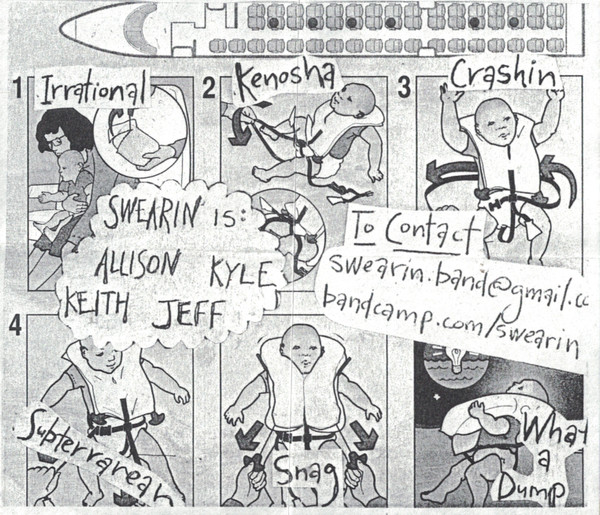 1 Irrational
2 Kenosha
3 Crashin
SWEARIN IS:
ALLISON KYLE
KEITH JEFF
To Contact
swearin.band@gmail.cc
bandcamp.com/swearin
4 Subterranean
5 Snag
6 What
a
Dump